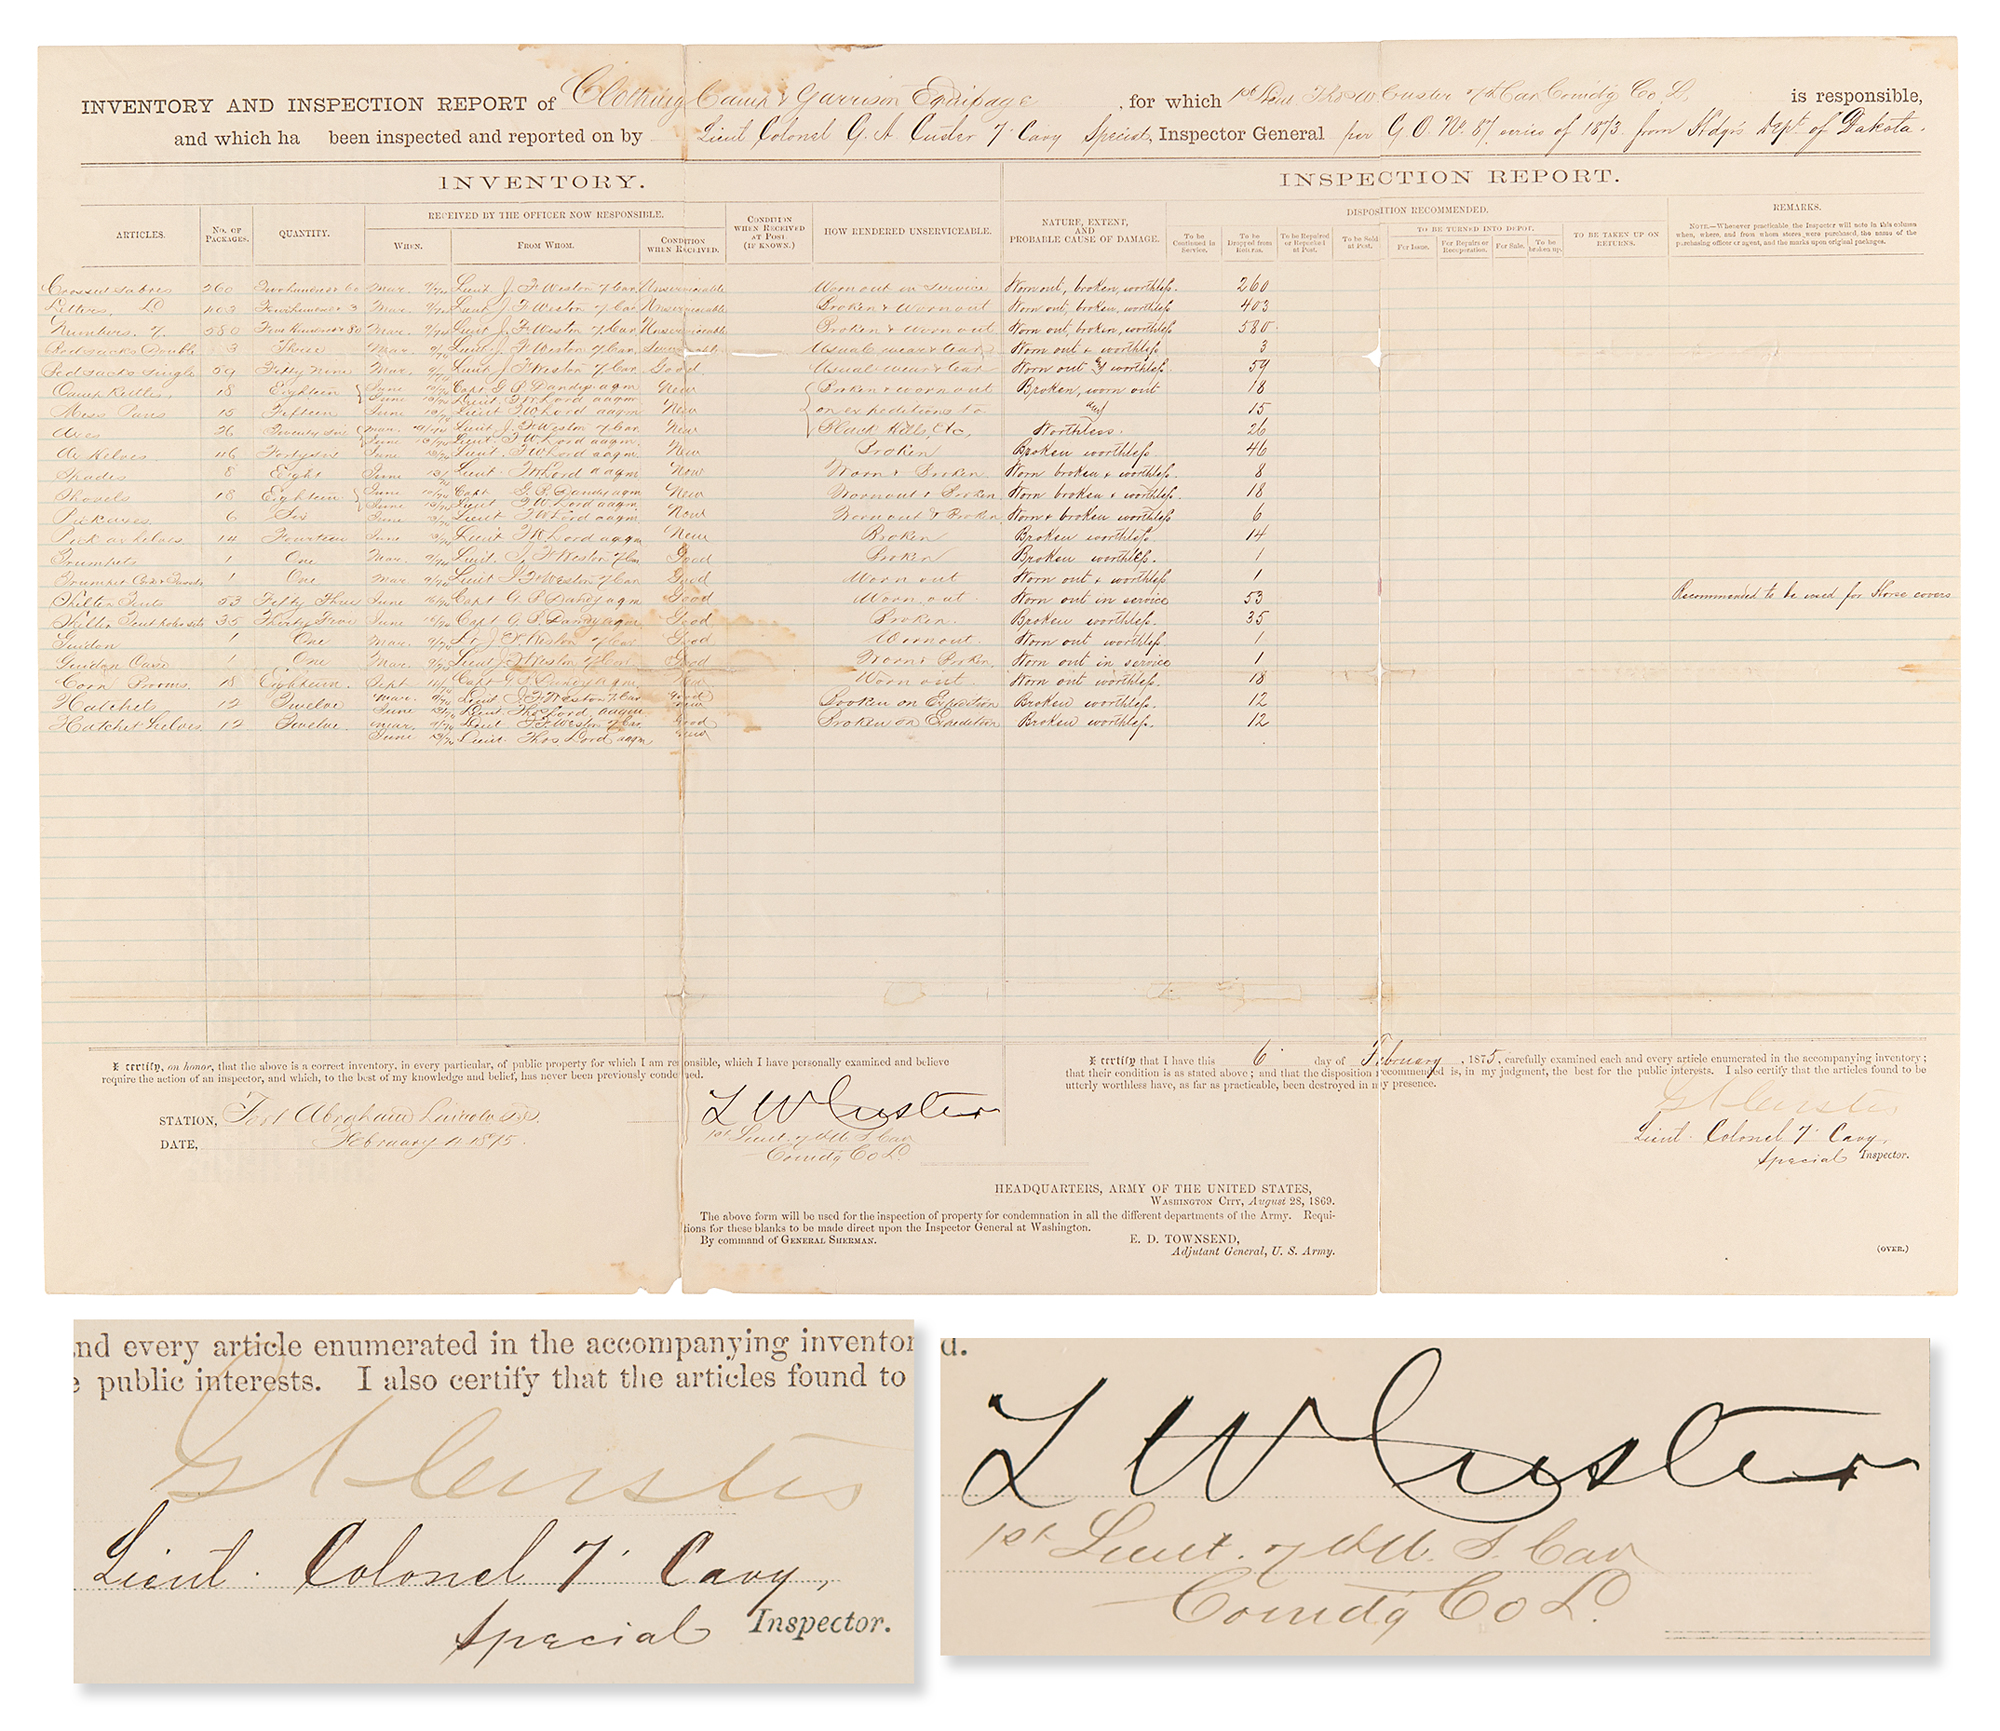 INVENTORY AND INSPECTION REPORT of Clothing Camp & Garrison Equipage, for which 1st Lieut. Thos W. Custer 7th Cav Comdg Co. L, is responsible,
and which ha been inspected and reported on by Lieut Colonel G. A. Custer 7. Cavy Special, Inspector General per G. O. No. 87, series of 1873. from Hdqrs Dept. of Dakota.
INVENTORY. INSPECTION REPORT.
ARTICLES. No. of Packages. QUANTITY. RECEIVED BY THE OFFICER NOW RESPONSIBLE. When. From Whom. Condition when Received. Condition when Received at Post (if known). HOW RENDERED UNSERVICEABLE. NATURE, EXTENT, AND PROBABLE CAUSE OF DAMAGE. DISPOSITION RECOMMENDED. To be Continued in Service. To be Dropped from Returns. To be Repaired or Reported at Post. To be Sold at Post. TO BE TURNED INTO DEPOT. For Issue. For Repairs or Recuperation. For Sale. To be broken up. TO BE TAKEN UP ON RETURNS. REMARKS.
Note.—Whenever practicable, the Inspector will note in this column when, where, and from whom stores were purchased, the name of the purchasing officer or agent, and the marks upon original packages.
Crossed Sabres 260 Mar. Lieut J. F. Weston 7 Cav Unserviceable Worn out in service Worn out, broken, worthless. 260
Letters, L 403 Mar. Lieut J. F. Weston 7 Cav Unserviceable Broken & Worn out Worn out, broken, worthless 403
Numbers. 7. 580 Mar. Lieut J. F. Weston 7 Cav Unserviceable Broken & Worn out Worn out, broken, worthless 580
Bedsacks Double 3 Three Mar. Lieut. J. F. Weston 7 Cav Usual wear & tear Worn out & worthless 3
Bedsacks Single 59 Fifty Nine Mar. Lieut J. F. Weston 7 Cav Good Usual wear & tear Worn out & worthless 59
Camp Kettles, 18 Eighteen June Capt. G. P. Dandy aqm New Broken & worn out Broken, worn out 18
June Lieut. T. W. Lord aaqm
Mess Pans 15 Fifteen June Lieut T. W. Lord aaqm New on expeditions to and 15
Axes 26 Twenty six Mar. Lieut J. F. Weston 7 Cav New Black Hills, Etc, Worthless. 26
June Lieut. T. W. Lord aaqm
Ax Helves 46 Forty six June Lieut. T. W. Lord aaqm New Broken Broken worthless. 46
Spades 8 Eight June Lieut. T. W. Lord aaqm New Worn & Broken Worn broken & worthless. 8
Shovels 18 Eighteen June Capt G. P. Dandy aqm New Worn out & Broken Worn broken & worthless. 18
June Lieut T. W. Lord aaqm
Pickaxes 6 Six June Lieut T. W. Lord aaqm New Worn out & Broken Worn & broken worthless 6
Pick ax helves 14 Fourteen June Lieut T. W. Lord aaqm New Broken Broken worthless. 14
Trumpets 1 One Mar. Lieut. J. F. Weston 7 Cav Good Broken Broken worthless. 1
Trumpet Cords & Tassels 1 One Mar. Lieut J. F. Weston 7 Cav Good Worn out Worn out & worthless 1
Shelter Tents 53 Fifty Three June Capt G. P. Dandy aqm Good Worn out Worn out in service 53 Recommended to be used for Horse covers
Shelter Tent poles sets 35 Thirty Five June Capt G. P. Dandy aqm Good Broken. Broken worthless. 35
Guidon 1 One Mar. Lt J. F. Weston 7 Cav Good Worn out. Worn out worthless. 1
Guidon Case 1 One Mar. Lieut J. F. Weston 7 Cav Good Worn & Broken. Worn out in service 1
Corn Brooms. 18 Eighteen. Sept Capt G. P. Dandy aqm New Worn out. Worn out worthless. 18
Hatchets 12 Twelve Mar. Lieut. J. F. Weston 7 Cav Good Broken on Expedition Broken worthless. 12
June Lieut. Thos Lord aaqm New
Hatchet Helves. 12 Twelve. Mar. Lieut J. F. Weston 7 Cav Good Broken on Expedition Broken worthless. 12
June Lieut. Thos Lord aaqm
I certify, on honor, that the above is a correct inventory, in every particular, of public property for which I am responsible, which I have personally examined and believe
require the action of an inspector, and which, to the best of my knowledge and belief, has never been previously condemned.
STATION, Fort Abraham Lincoln D.T.
DATE, February 1875.
T W Custer
1st Lieut. 7th U. S. Cav
Comdg Co L.
I certify that I have this 6 day of February, 1875, carefully examined each and every article enumerated in the accompanying inventory;
that their condition is as stated above; and that the disposition recommended is, in my judgment, the best for the public interests. I also certify that the articles found to be
utterly worthless have, as far as practicable, been destroyed in my presence.
G A Custer
Lieut. Colonel 7. Cavy,
Special Inspector.
HEADQUARTERS, ARMY OF THE UNITED STATES,
Washington City, August 28, 1869.
The above form will be used for the inspection of property for condemnation in all the different departments of the Army. Requi-
tions for these blanks to be made direct upon the Inspector General at Washington.
By command of General Sherman.
E. D. TOWNSEND,
Adjutant General, U. S. Army.
(OVER.)
nd every article enumerated in the accompanying inventor
e public interests. I also certify that the articles found to
G A Custer
Lieut. Colonel 7. Cavy,
Special Inspector.
d.
T W Custer
1st Lieut. 7th U. S. Cav
Comdg Co L.